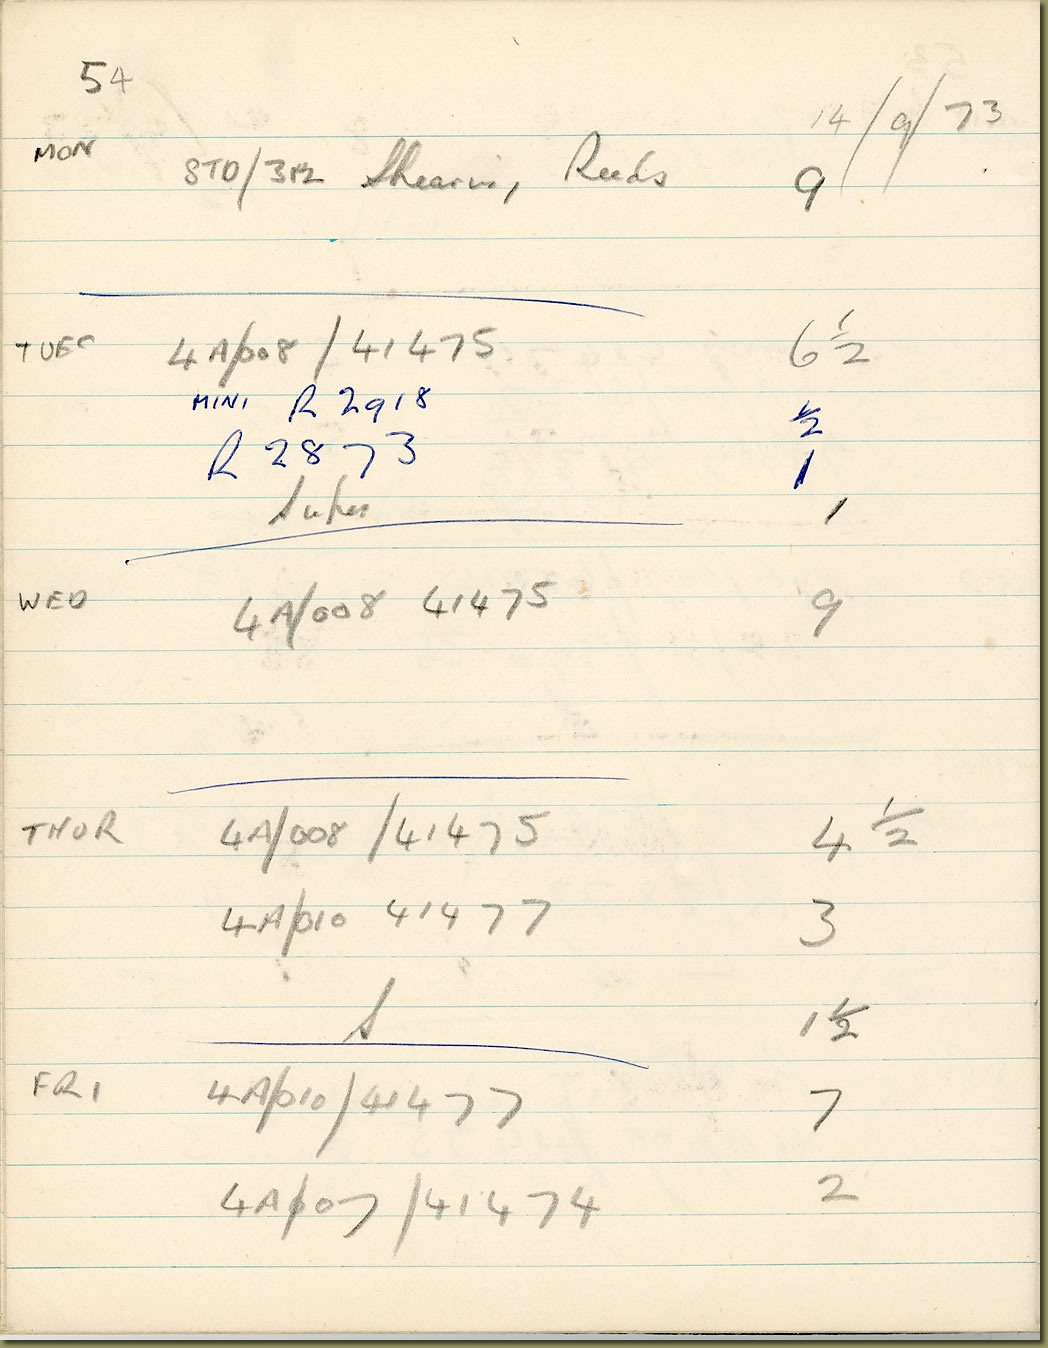 54
14/9/73
MON STD/3M Shearin, Reeds 9
TUES 4A/008 / 41475 6 1/2
MINI R 2918 1/2
R 2873 1
1
WED 4A/008 41475 9
THUR 4A/008 / 41475 4 1/2
4A/010 41477 3
S 1 1/2
FRI 4A/010 / 41477 7
4A/007 / 41474 2